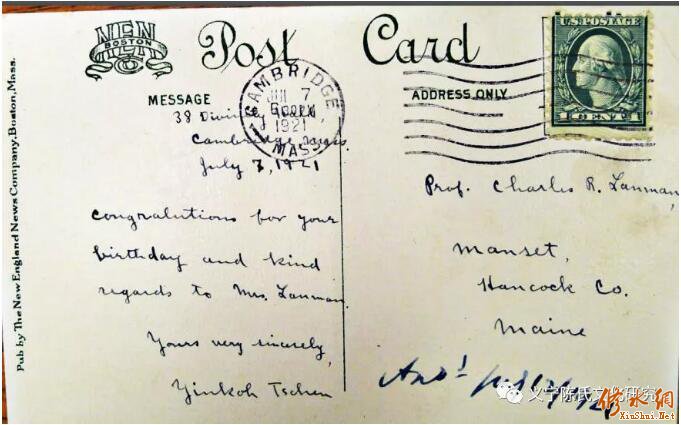 NEN
BOSTON
Post Card
U.S. POSTAGE
1 CENT 1
CAMBRIDGE
JUL 7
6 00 PM
1921
MASS.
MESSAGE
ADDRESS ONLY
38 Divinity Hall,
Cambridge, Mass.
July 7, 1921
congralutions for your
birthday and kind
regards to Mrs. Lanman.
Yours very sincerely,
Yinkoh Tschen
Prof. Charles R. Lanman,
Manset,
Hancock Co.
Maine
Ans'd
Pub by The New England News Company, Boston, Mass.
义宁陈氏文化研究
修水網
XiuShui.Net